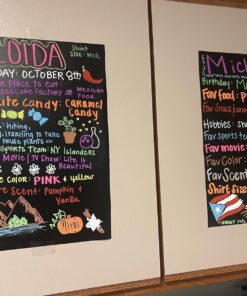 OIDA
Shirt Size: Med.
DAY: OCTOBER 8th
e place to eat
CHEESECAKE FACTORY & MEXICAN FOOD
ite Candy: CARAMEL CANDY
hiking,
learning to take
house plants
Sports Team: NY Islanders
Movie/TV Show: Life is Beautiful
e Color: PINK & yellow
e Scent: Pumpkin & Vanilla
Mich
Birthday: M
Fav food: P
Fav Snack/cand
Hobbies:
Fav Sports
Fav movie
Fav Color
Fav Scen
Shirt Size